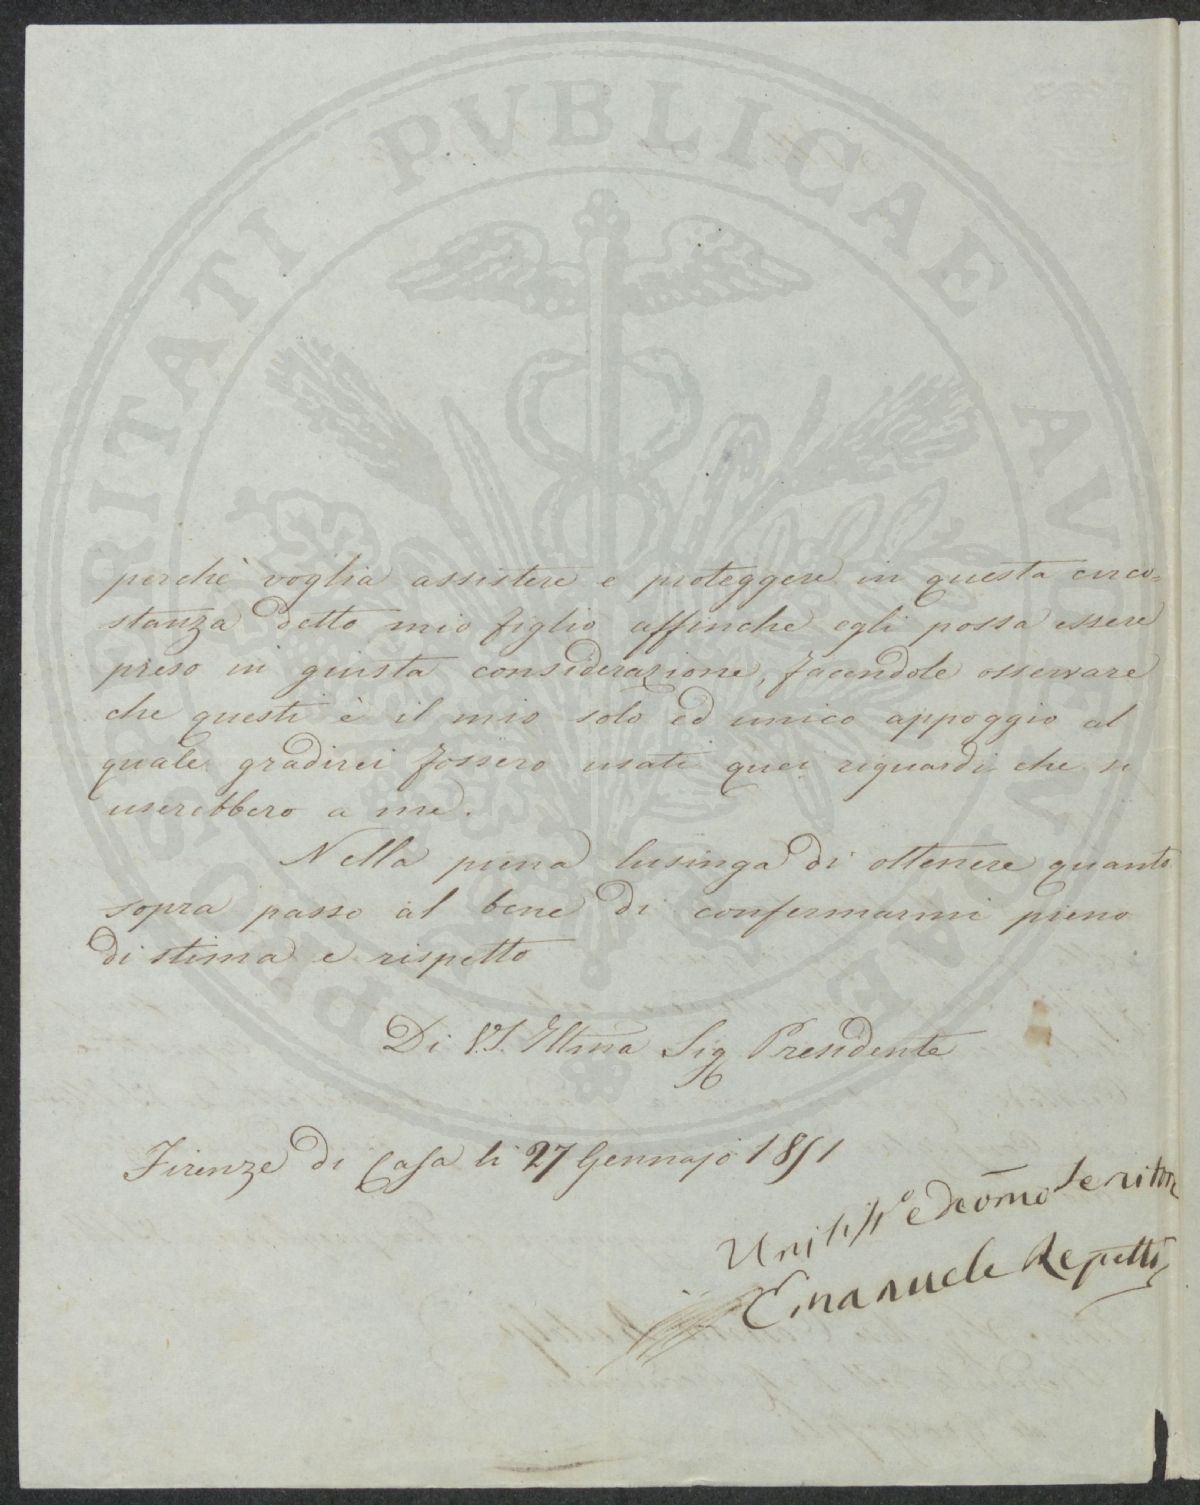 PROSPERITATI PVBLICAE AVGENDAE
perchè voglia assistere e proteggere in questa circo=
stanza detto mio figlio affinche egli possa essere
preso in giusta considerazione, facendole osservare
che questi è il mio solo ed unico appoggio al
quale gradirei fossero usati quei riguardi che si
userebbero a me.
Nella piena lusinga di ottenere quanto
sopra passo al bene di confermarmi pieno
di stima e rispetto
Di V.S. Illma Sig Presidente
Firenze di Casa li 27 Gennajo 1851
Umilisso e Devomo Servitore
Emanuele Repetti